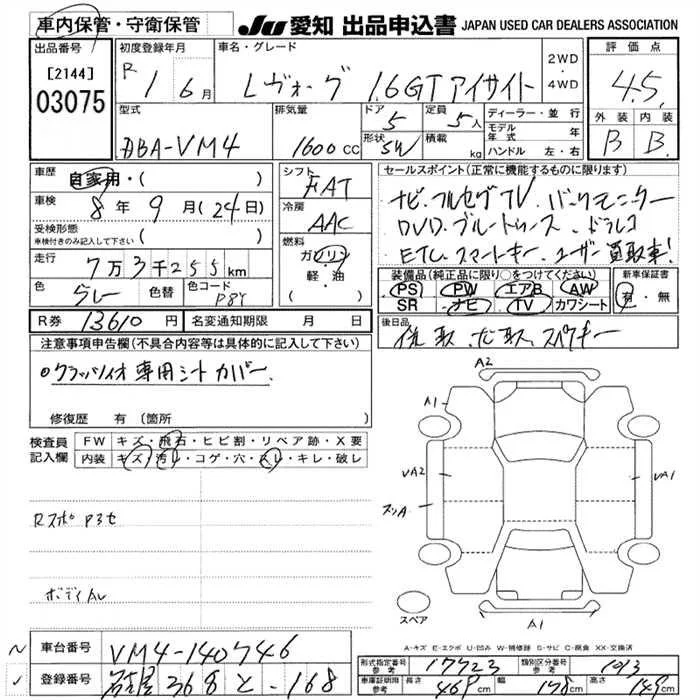 車内保管・守衛保管
JU 愛知 出品申込書 JAPAN USED CAR DEALERS ASSOCIATION
出品番号
[2144]
03075
初度登録年月
R 1 6月
車名・グレード
Lヴォーグ 1.6GTアイサイト
2WD
・
4WD
評価点
4.5
外装 内装
B B
型式
DBA-VM4
排気量
1600cc
ドア
5
形状
SW
定員
5人
積載
kg
ディーラー・並行
モデル年式 年
ハンドル 左・右
車歴
自家用・( )
車検
8年 9月(24日)
受検形態
車検付きのみ記入して下さい ( )
走行
7万3千255km
色
グレー
色替
色コード
P8Y
シフト
FAT
冷房
AAC
燃料
ガソリン
・軽・油
( )
セールスポイント(正常に機能するものに限ります)
ナビ・フルセグTV.バックモニター
DVD.ブルートゥース.ドラレコ
ETC.スマートキー.ユーザー買取車!
装備品(純正品に限り○をつけてください)
PS PW エアB AW
SR ナビ TV カワシート
新車保証書
有・無
R券 13610円
名変通知期限 月 日
後日品
保取.記取.スペアキー
注意事項申告欄(不具合内容等は具体的に記入して下さい)
○クラッツィオ専用シートカバー.
修復歴 有(箇所 )
検査員
記入欄
FW キズ・飛石・ヒビ割・リペア跡・X要
内装 キズ・汚れ・コゲ・穴・スレ・キレ・破レ
Rスポ P3セ
ボディAレ
A2
A1
VA2
VA1
スリA
スペア
A1
A-キズ E-エクボ U-凹み W-補修跡 S-サビ C-腐食 XX-交換済
車台番号 VM4-140746
登録番号 名古屋 368 と -168
形式指定番号
参考
17723
類別区分番号
参考
1013
車庫証明用
参考
長さ 469cm 幅 178cm 高さ 149cm